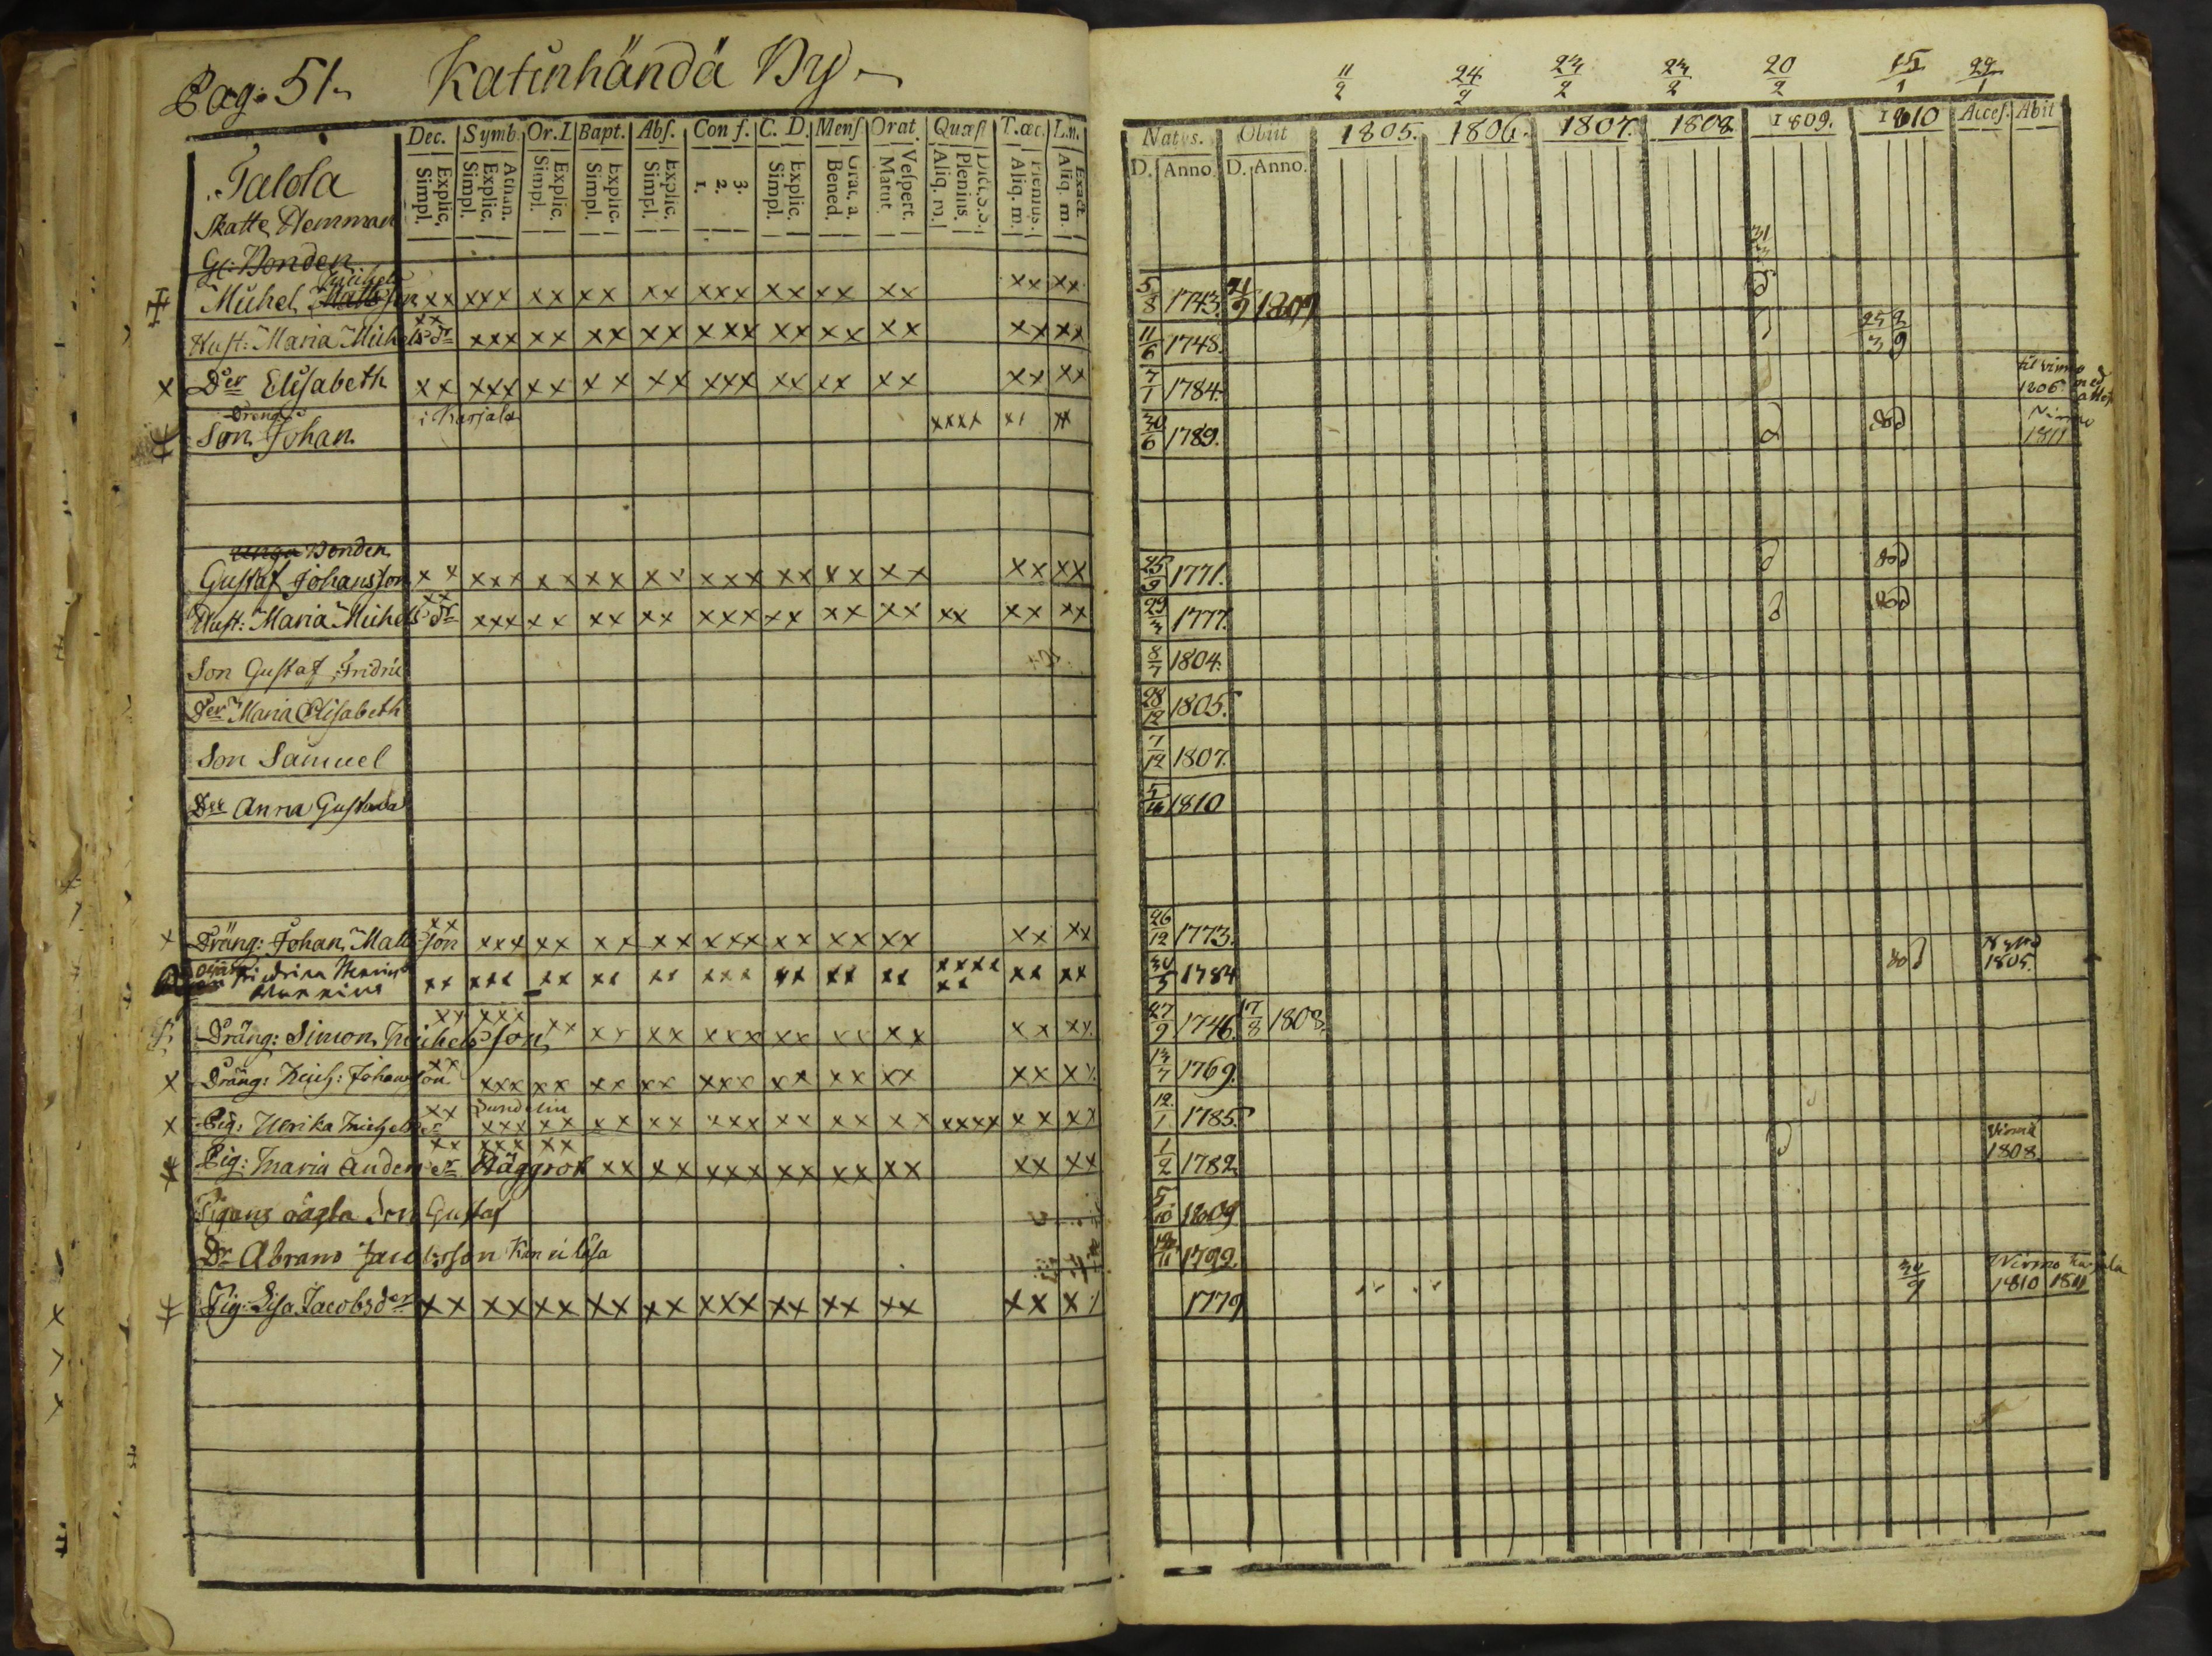 Pag: 51. Katinhändä By
Dec. Symb. Or. I. Bapt. Abſ. Conf. C. D. Menſ Orat. Quæſt T. œc. L. m.
Explic. Simpl. Athan. Explic. Simpl. Explic. Simpl. Explic. Simpl. Explic. Simpl. 3. 2. 1. Explic. Simpl. Grat. a. Bened. Veſpert. Matut. Dict. S.S. Plenius. Aliq. m. Plenius. Aliq. m. Exact. Aliq. m.
Talola
Skatte Hemman
Gl: Bonden
Michel Matts son Michels xx xxx xx xx xx xxx xx xx xx xx xx
Hust: Maria Michels dr xx xxx xx xx xx xxx xx xx xx xx xx
Der Elisabeth xx xxx xx xx xx xxx xx xx xx xx xx
Dreng
Son Johan i Karjala xxxx xx xx
Unga Bonden
Gustaf Johansson xx xxx xx xx xx xxx xx xx xx xx xx
Hust: Maria Michels dr xx xxx xx xx xx xxx xx xx xx xx xx xx
Son Gustaf Fridric
Der Maria Elisabeth
Son Samuel
Der Anna Gustava
Dräng: Johan Matts son xx xxx xx xx xx xxx xx xx xx xx xx
xx xxx xx xx xx xxx xx xx xx xxxx xx xx xx
Dräng: Simon Michelsson xx xxx xx xx xx xxx xx xx xx xx xx
Dräng: Mich: Johansson xx xxx xx xx xx xxx xx xx xx xx xx
Pig: Ulrika Michels dr Sundelin xx xxx xx xx xx xxx xx xx xx xxxx xx xx
Pig: Maria Anders dr Häggrot xx xxx xx xx xx xxx xx xx xx xx xx
Pigans oägta Son Gustaf
Dr Abram Jacobsson Kan ei läsa
Pig: Lisa Jacobsder xx xx xx xx xx xxx xx xx xx xx xx
11/2 24/2 23/2 23/2 20/2 15/1 29/1
Natus. Obiit 1805. 1806. 1807. 1808. 1809. 1810 Acceſ. Abiit
D. Anno. D. Anno.
5/8 1743. 1809
11/6 1748.
7/1 1784. til Virmo 1806 med attest
30/6 1789. Virmo 1811
25/9 1771.
29/3 1777.
8/7 1804.
28/12 1805.
7/12 1807.
1810
26/12 1773.
1784 1805.
27/9 1746. 17/8 1808.
13/7 1769.
12/1 1785.
1/2 1782 Virmo 1808.
5/10 1809
1792. Wirmo 1810 1811
1779